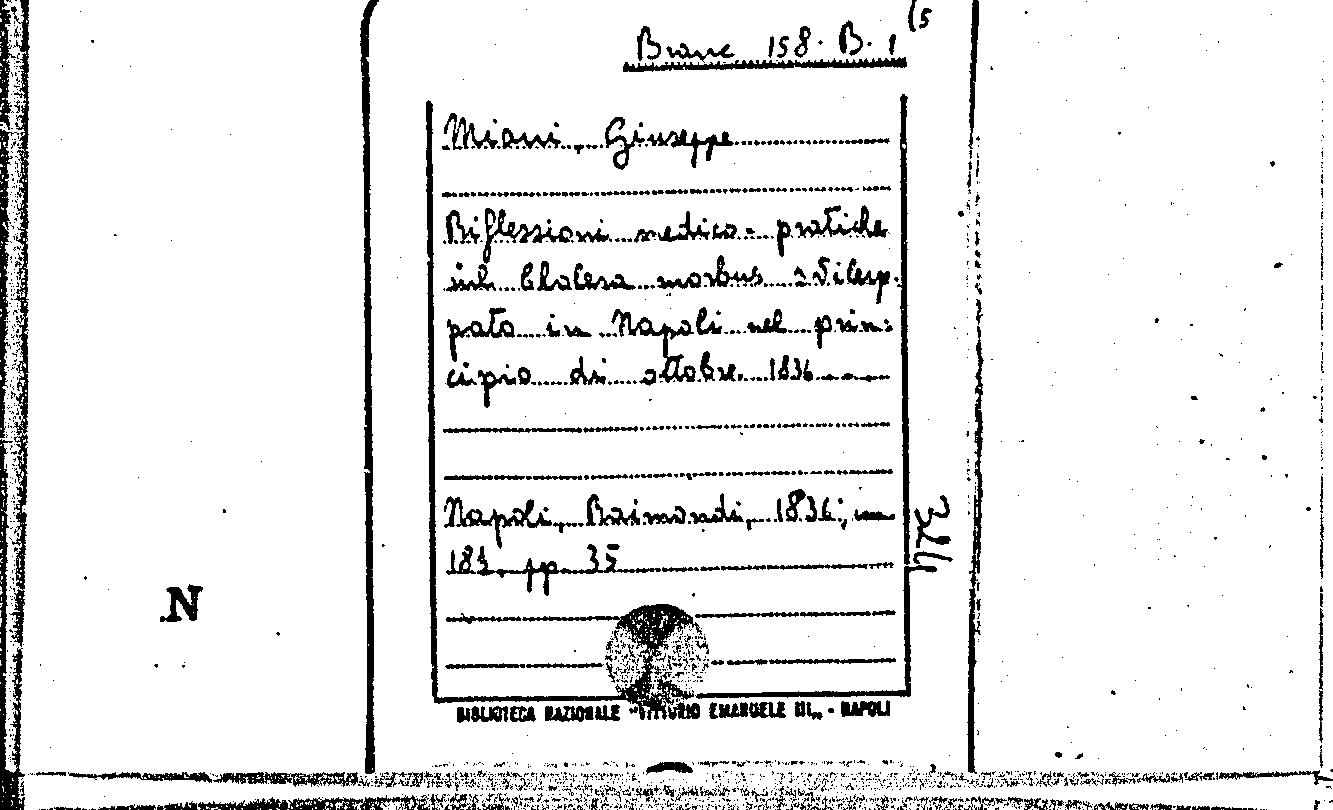 Branc 158. B. 1 (5
Miani, Giuseppe
Riflessioni medico-pratiche
sul Cholera morbus svilup-
pato in Napoli nel prin-
cipio di ottobre 1836
Napoli, Raimondi, 1836, in
18º, pp. 35
N
BIBLIOTECA NAZIONALE "VITTORIO EMANUELE III„ - NAPOLI